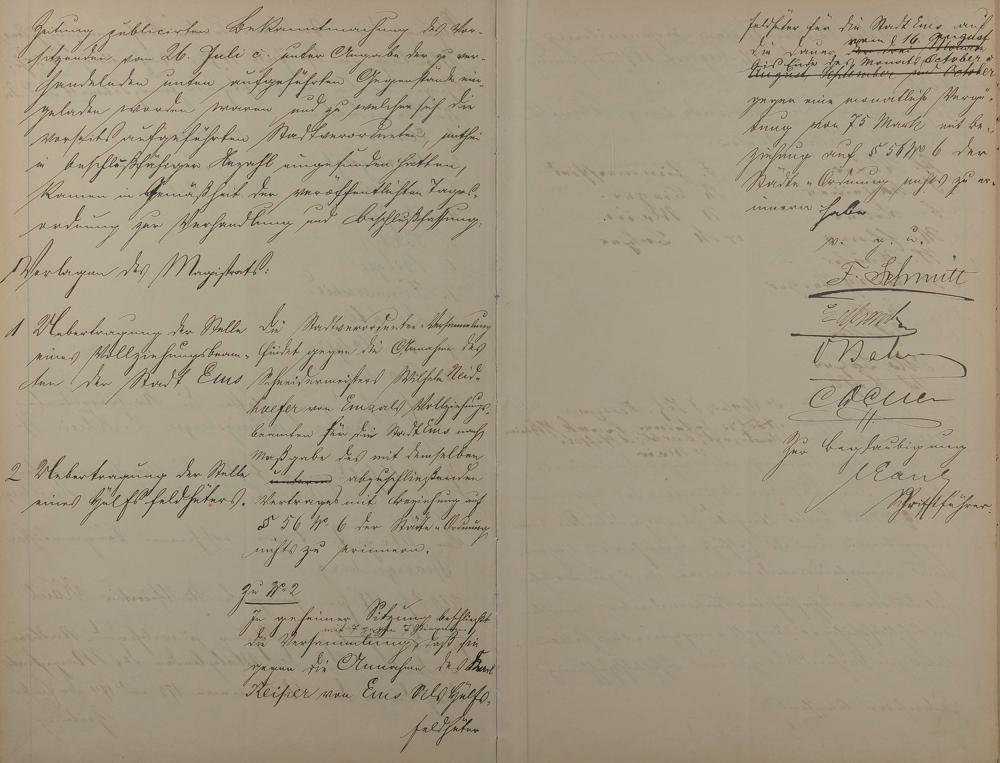 Zeitung publicirten Bekanntmachung des Vor-
sitzenden vom 26. Juli c. unter Angabe der zu ver-
handelnden unten aufgeführten Gegenstände ein-
geladen worden waren und zu welcher sich die
vorseits aufgeführten Stadtverordneten, mithin
in beschlußfähiger Anzahl eingefunden hatten,
kamen in Gemäßheit der veröffentlichten Tages-
ordnung zur Verhandlung und Beschlußfassung:
Vorlagen des Magistrats:
1 Uebertragung der Stelle
eines Vollziehungsbeam-
ten der Stadt Ems
2 Uebertragung der Stelle
eines Hülfsfeldhüters.
Die Stadtverordneten-Versammlung
findet gegen die Annahme des
Schneidermeisters Wilhelm Neid-
hoefer von Ems als Vollziehungs-
beamten für die Stadt Ems nach
Maßgabe des mit demselben
abzuschließenden
Vertrages mit Beziehung auf
§ 56 No 6 der Städte-Ordnung
nichts zu erinnern.
Zu No 2
In geheimer Sitzung beschließt
mit 7 gegen 7 Stimmen
die Versammlung, daß sie
gegen die Annahme des Karl
Keißer von Ems als Hülfs-
feldhüter
Feldhüter für die Stadt Ems auf
die Dauer der drei Monate vom 16. August
bis Ende des Monats October c
August, September und October
gegen eine monatliche Vergü-
tung von 75 Mark mit Be-
ziehung auf § 56 No 6 der
Städte-Ordnung nichts zu er-
innern habe
v. g. u.
F. Schmitt
Zur Beglaubigung
Schriftführer.